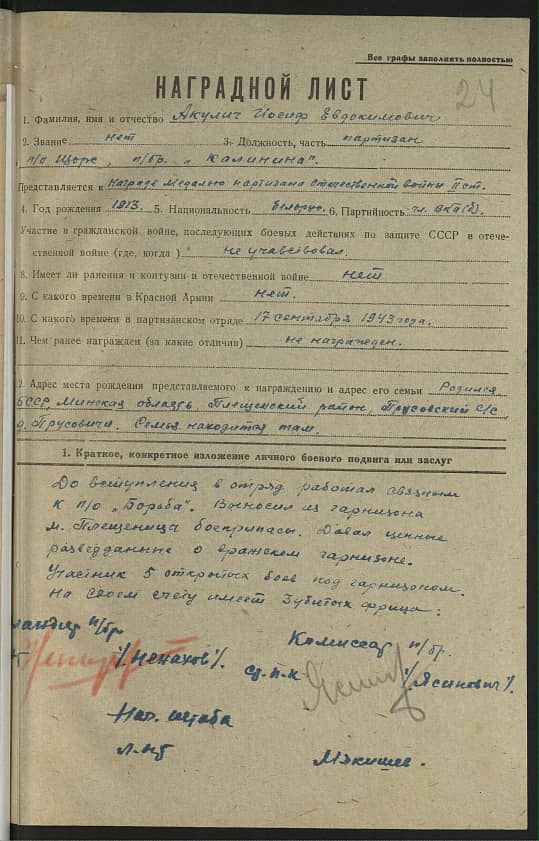 Все графы заполнить полностью
24
НАГРАДНОЙ ЛИСТ
1. Фамилия, имя и отчество Акулич Иосиф Евдокимович
2. Звание нет 3. Должность, часть партизан
п/о Щорс, п/бр. „Калинина".
Представляется к Награде Медалью партизана Отечественной войны II ст.
4. Год рождения 1913. 5. Национальность белорус. 6. Партийность чл. ВКП(б)
Участие в гражданской войне, последующих боевых действиях по защите СССР в отече-
ственной войне (где, когда) не учавствовал.
8. Имеет ли ранения и контузии в отечественной войне нет
9. С какого времени в Красной Армии нет.
10. С какого времени в партизанском отряде 17 сентября 1943 года.
11. Чем ранее награжден (за какие отличия) не награжден.
2. Адрес места рождения представляемого к награждению и адрес его семьи Родился
БССР, Минская область, Плещенский район, Прусовский С/с
д. Прусовичи. Семья находится там.
1. Краткое, конкретное изложение личного боевого подвига или заслуг
До вступления в отряд работал связным
к п/о „Борьба". Выносил из гарнизона
м. Плещеницы боеприпасы. Давал ценные
разведданные о вражеском гарнизоне.
Участник 5 открытых боев под гарнизоном.
На своем счету имеет 3 убитых фрица:
ландир п/бр. Комиссар п/бр.
/Ненахов/. ст. п-к /Ясинович/.
Нач. штаба
Л-нт Мякишев.